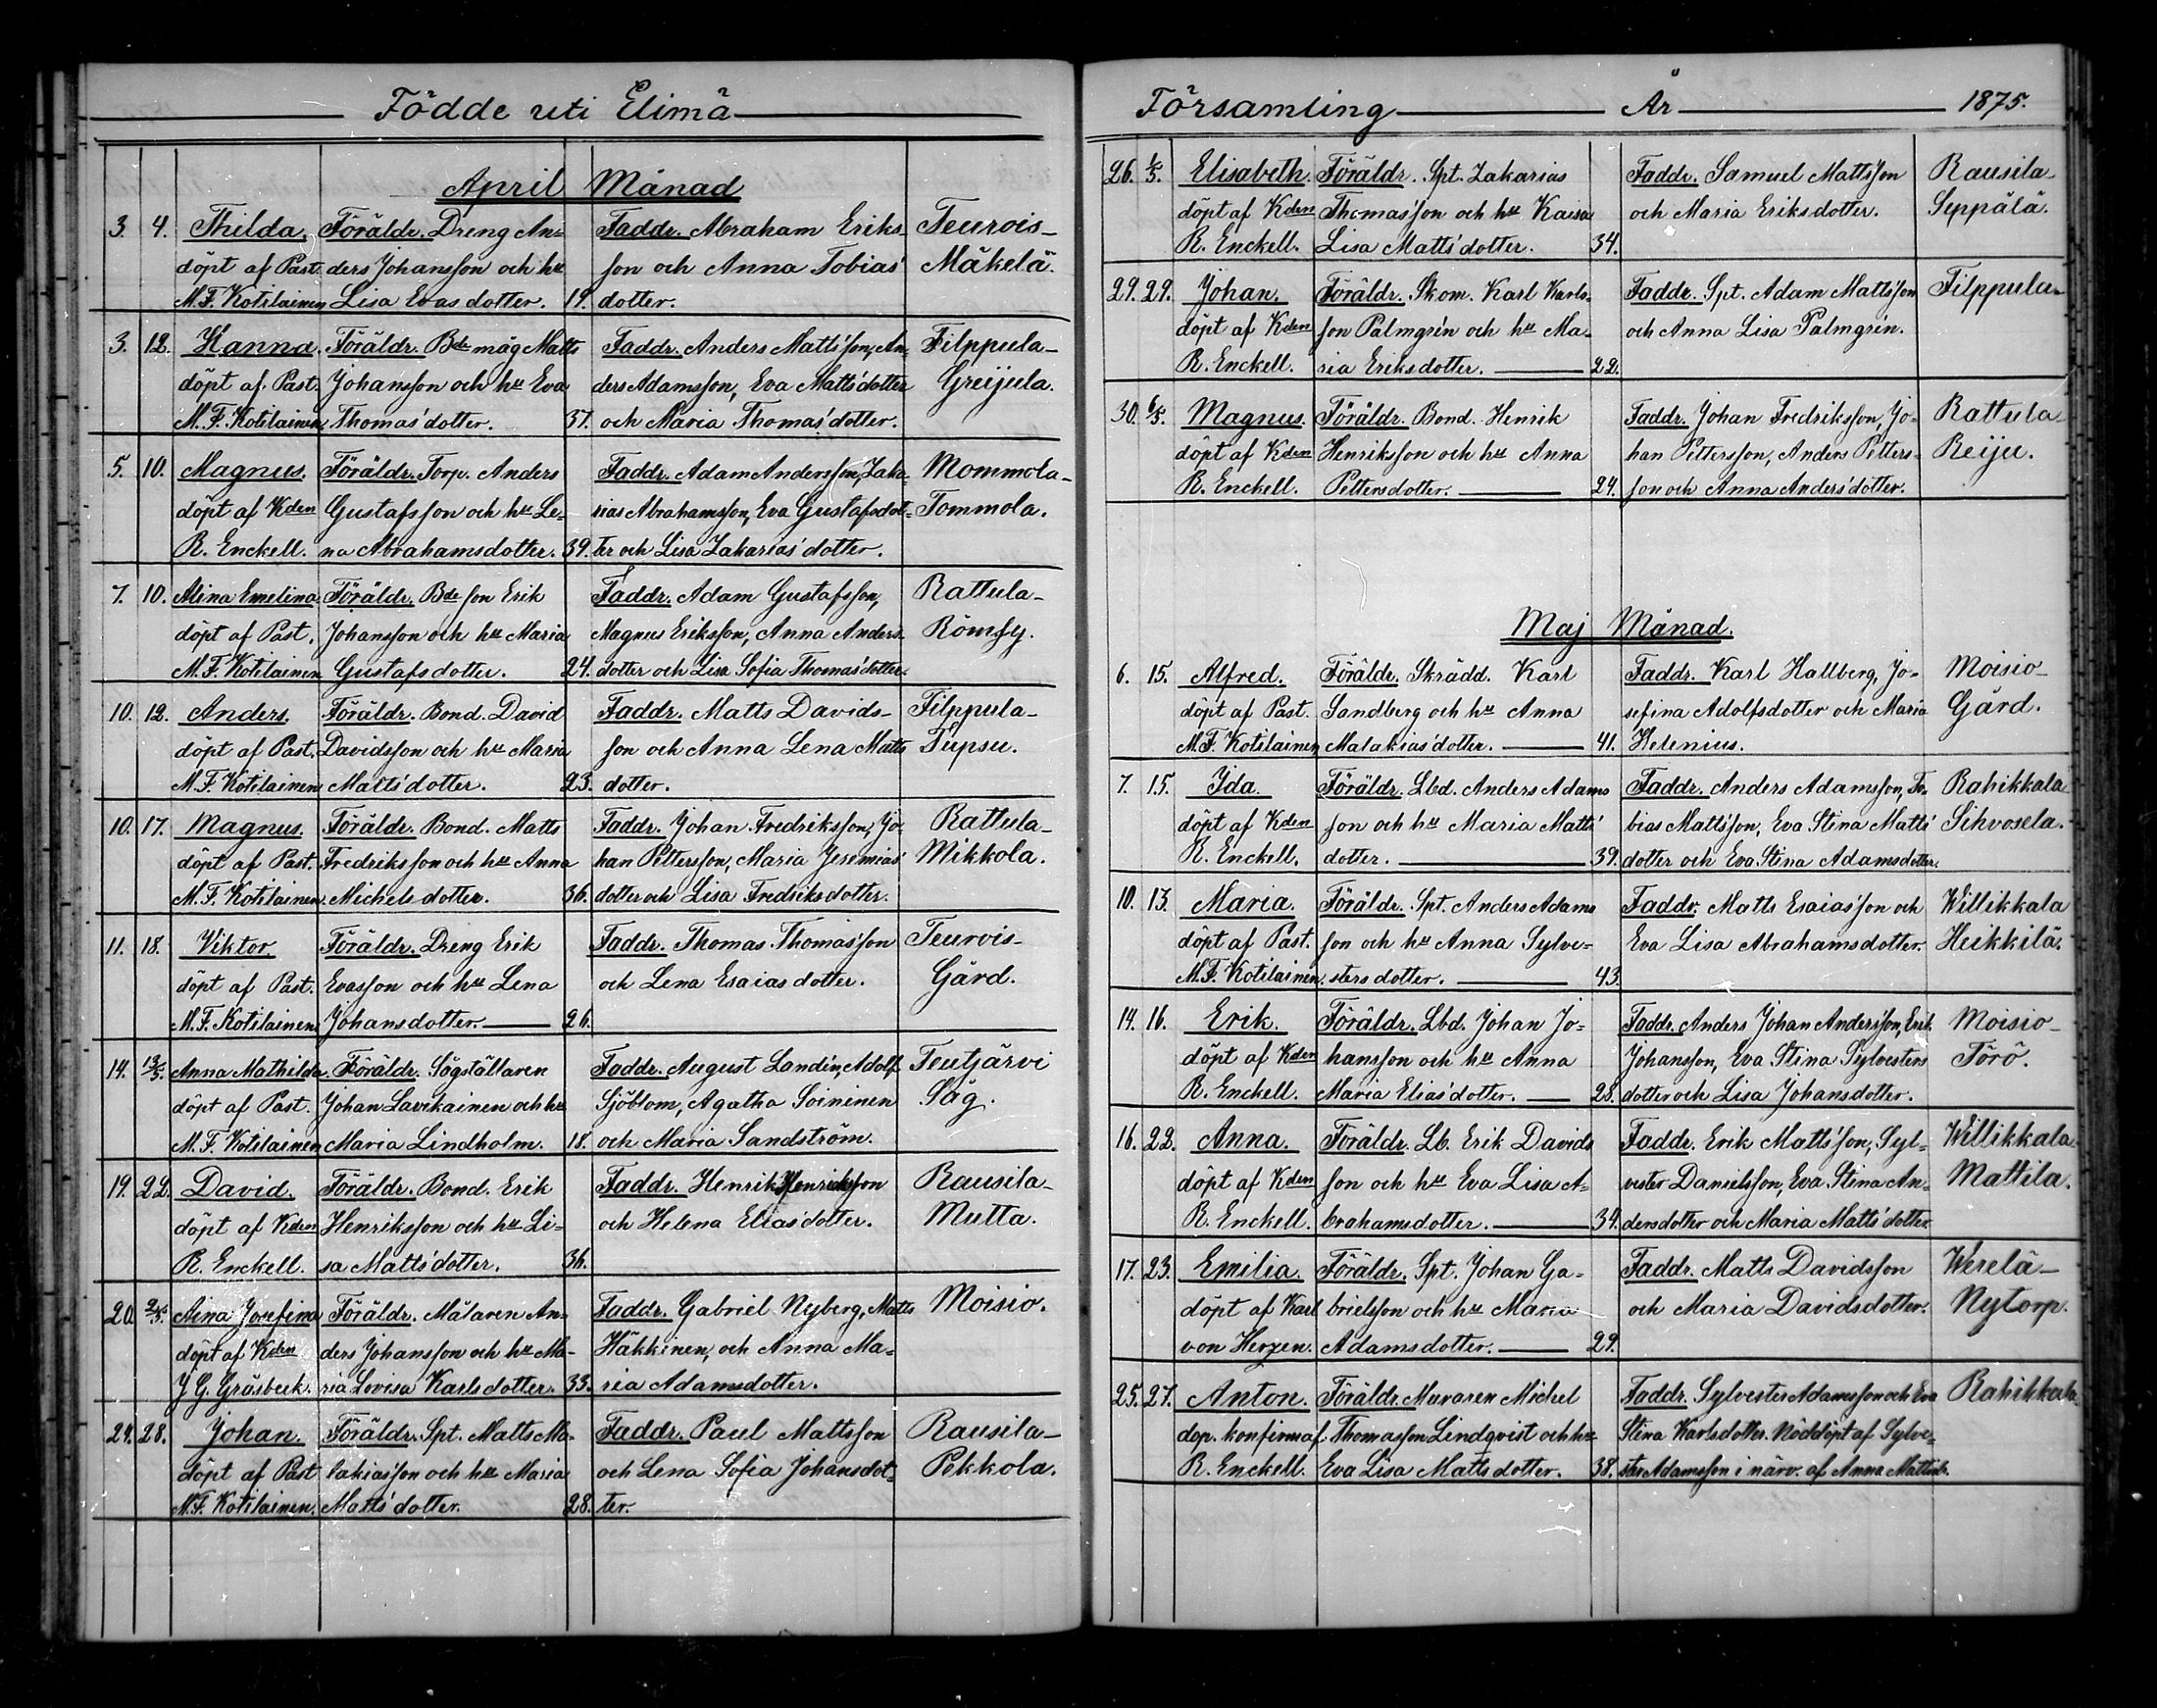 Födde uti Elimä
April Månad
3. 4. Thilda. Föräldr. Dreng An- Faddr. Abraham Eriks- Teurois-
döpt af Past. ders Johansson och hu son och Anna Tobias' Mäkelä.
M. F. Kotilainen Lisa Evasdotter. 19. dotter.
3. 12. Hanna. Föräldr. Bde måg Matts Faddr. Anders Matts'son, An- Filppula-
döpt af Past. Johansson och hu Eva ders Adamsson, Eva Matts'dotter Greijula.
M. F. Kotilainen Thomas'dotter. 37. och Maria Thomas'dotter.
5. 10. Magnus. Föräldr. Torp. Anders Faddr. Adam Andersson, Zaka- Mommola-
döpt af Kden Gustafsson och hu Le- rias Abrahamsson, Eva Gustafsdot- Tommola.
R. Enckell. na Abrahamsdotter. 39. ter och Lisa Zakarias'dotter.
7. 10. Alina Emelina. Föräldr. Bde son Erik Faddr. Adam Gustafsson, Rattula-
döpt af Past. Johansson och hu Maria Magnus Eriksson, Anna Anders- Römsy.
M. F. Kotilainen Gustafsdotter. 24. dotter och Lisa Sofia Thomas'dotter.
10. 12. Anders. Föräldr. Bond. David Faddr. Matts Davids- Filppula-
döpt af Past. Davidsson och hu Maria son och Anna Lena Matts Tupsu.
M. F. Kotilainen Matts'dotter. 23. dotter.
10. 17. Magnus. Föräldr. Bond. Matts Faddr. Johan Fredriksson, Jo- Rattula-
döpt af Past. Fredriksson och hu Anna han Pettersson, Maria Jeremias' Mikkola.
M. F. Kotilainen Michelsdotter. 36. dotter och Lisa Fredriksdotter.
11. 18. Viktor. Föräldr. Dreng Erik Faddr. Thomas Thomas'son Teurvis-
döpt af Past. Evasson och hu Lena och Lena Esaiasdotter. Gård.
M. F. Kotilainen Johansdotter. 26.
14. 13/5. Anna Mathilda. Föräldr. Sågställaren Faddr. August Landin, Adolf Teutjärvi
döpt af Past. Johan Lavikainen och hu Sjöblom, Agatha Soininen Såg.
M. F. Kotilainen Maria Lindholm. 18. och Maria Sandström.
19. 22. David. Föräldr. Bond. Erik Faddr. Henrik Henriksson Rausila-
döpt af Kden Henriksson och hu Li- och Helena Elias'dotter. Mutta.
R. Enckell. sa Matts'dotter. 36.
20. 2/5. Aina Josefina Föräldr. Målaren An- Faddr. Gabriel Nyberg, Matts Moisio.
döpt af Kden ders Johansson och hu Ma- Häkkinen, och Anna Ma-
J. G. Gräsbeck. ria Lovisa Karlsdotter. 33. ria Adamsdotter.
24. 28. Johan. Föräldr. Spt. Matts Ma- Faddr. Paul Mattsson Rausila-
döpt af Past. lakias'son och hu Maria och Lena Sofia Johansdot- Pekkola.
M. F. Kotilainen. Matts'dotter. 28. ter.
Församling År 1875.
26. 1/5. Elisabeth. Föräldr. Spt. Zakarias Faddr. Samuel Mattsson Rausila-
döpt af Kden Thomas'son och hu Kaisa och Maria Eriksdotter. Seppälä.
R. Enckell. Lisa Matts'dotter. 34.
29. 29. Johan. Föräldr. Skom. Karl Karls- Faddr. Spt. Adam Matts'son Filppula-
döpt af Kden son Palmgrén och hu Ma- och Anna Lisa Palmgren.
R. Enckell. ria Eriksdotter. 22.
30. 6/5. Magnus. Föräldr. Bond. Henrik Faddr. Johan Fredriksson, Jo- Rattula-
döpt af Kden Henriksson och hu Anna han Pettersson, Anders Petters- Reiju.
R. Enckell. Pettersdotter. 24. son och Anna Anders'dotter.
Maj Månad.
6. 15. Alfred. Föräldr. Skrädd. Karl Faddr. Karl Hallberg, Jo- Moisio-
döpt af Past. Sandberg och hu Anna sefina Adolfsdotter och Maria Gård.
M. F. Kotilainen Malakias'dotter. 41. Helenius.
7. 15. Ida Föräldr. Lbd. Anders Adams Faddr. Anders Adamsson, To- Rahikkala
döpt af Kden son och hu Maria Matts' bias Matts'son, Eva Stina Matts' Sihvosela.
R. Enckell. dotter. 39. dotter och Eva Stina Adamsdotter.
10. 13. Maria. Föräldr. Spt. Anders Adams Faddr. Matts Esaias'son och Willikkala
döpt af Past. son och hu Anna Sylve- Eva Lisa Abrahamsdotter. Heikkilä.
M. F. Kotilainen. stersdotter. 43.
14. 16. Erik. Föräldr. Lbd. Johan Jo- Faddr. Anders Johan Andersson, Erik Moisio-
döpt af Kden hansson och hu Anna Johansson, Eva Stina Sylvesters Törö.
R. Enckell. Maria Elias'dotter. 28. dotter och Lisa Johansdotter.
16. 22. Anna. Föräldr. Lb. Erik Davids Faddr. Erik Matts'son, Syl- Willikkala-
döpt af Kden son och hu Eva Lisa A- vester Danielsson, Eva Stina An- Mattila.
R. Enckell. brahamsdotter. 34. dersdotter och Maria Matts'dotter.
17. 23. Emilia. Föräldr. Spt. Johan Ga- Faddr. Matts Davidsson Werelä-
döpt af Karl brielsson och hu Maria och Maria Davidsdotter. Nytorp.
von Herzen. Adamsdotter. 29.
25. 27. Anton. Föräldr. Muraren Michel Faddr. Sylvester Adamsson och Eva Rahikkala
dop. konfirm af Thomasson Lindqvist och hu Stina Karlsdotter. Nöddöpt af Sylve-
R. Enckell. Eva Lisa Mattsdotter. 38. ster Adamsson i närv. af Anna Mattsdr.